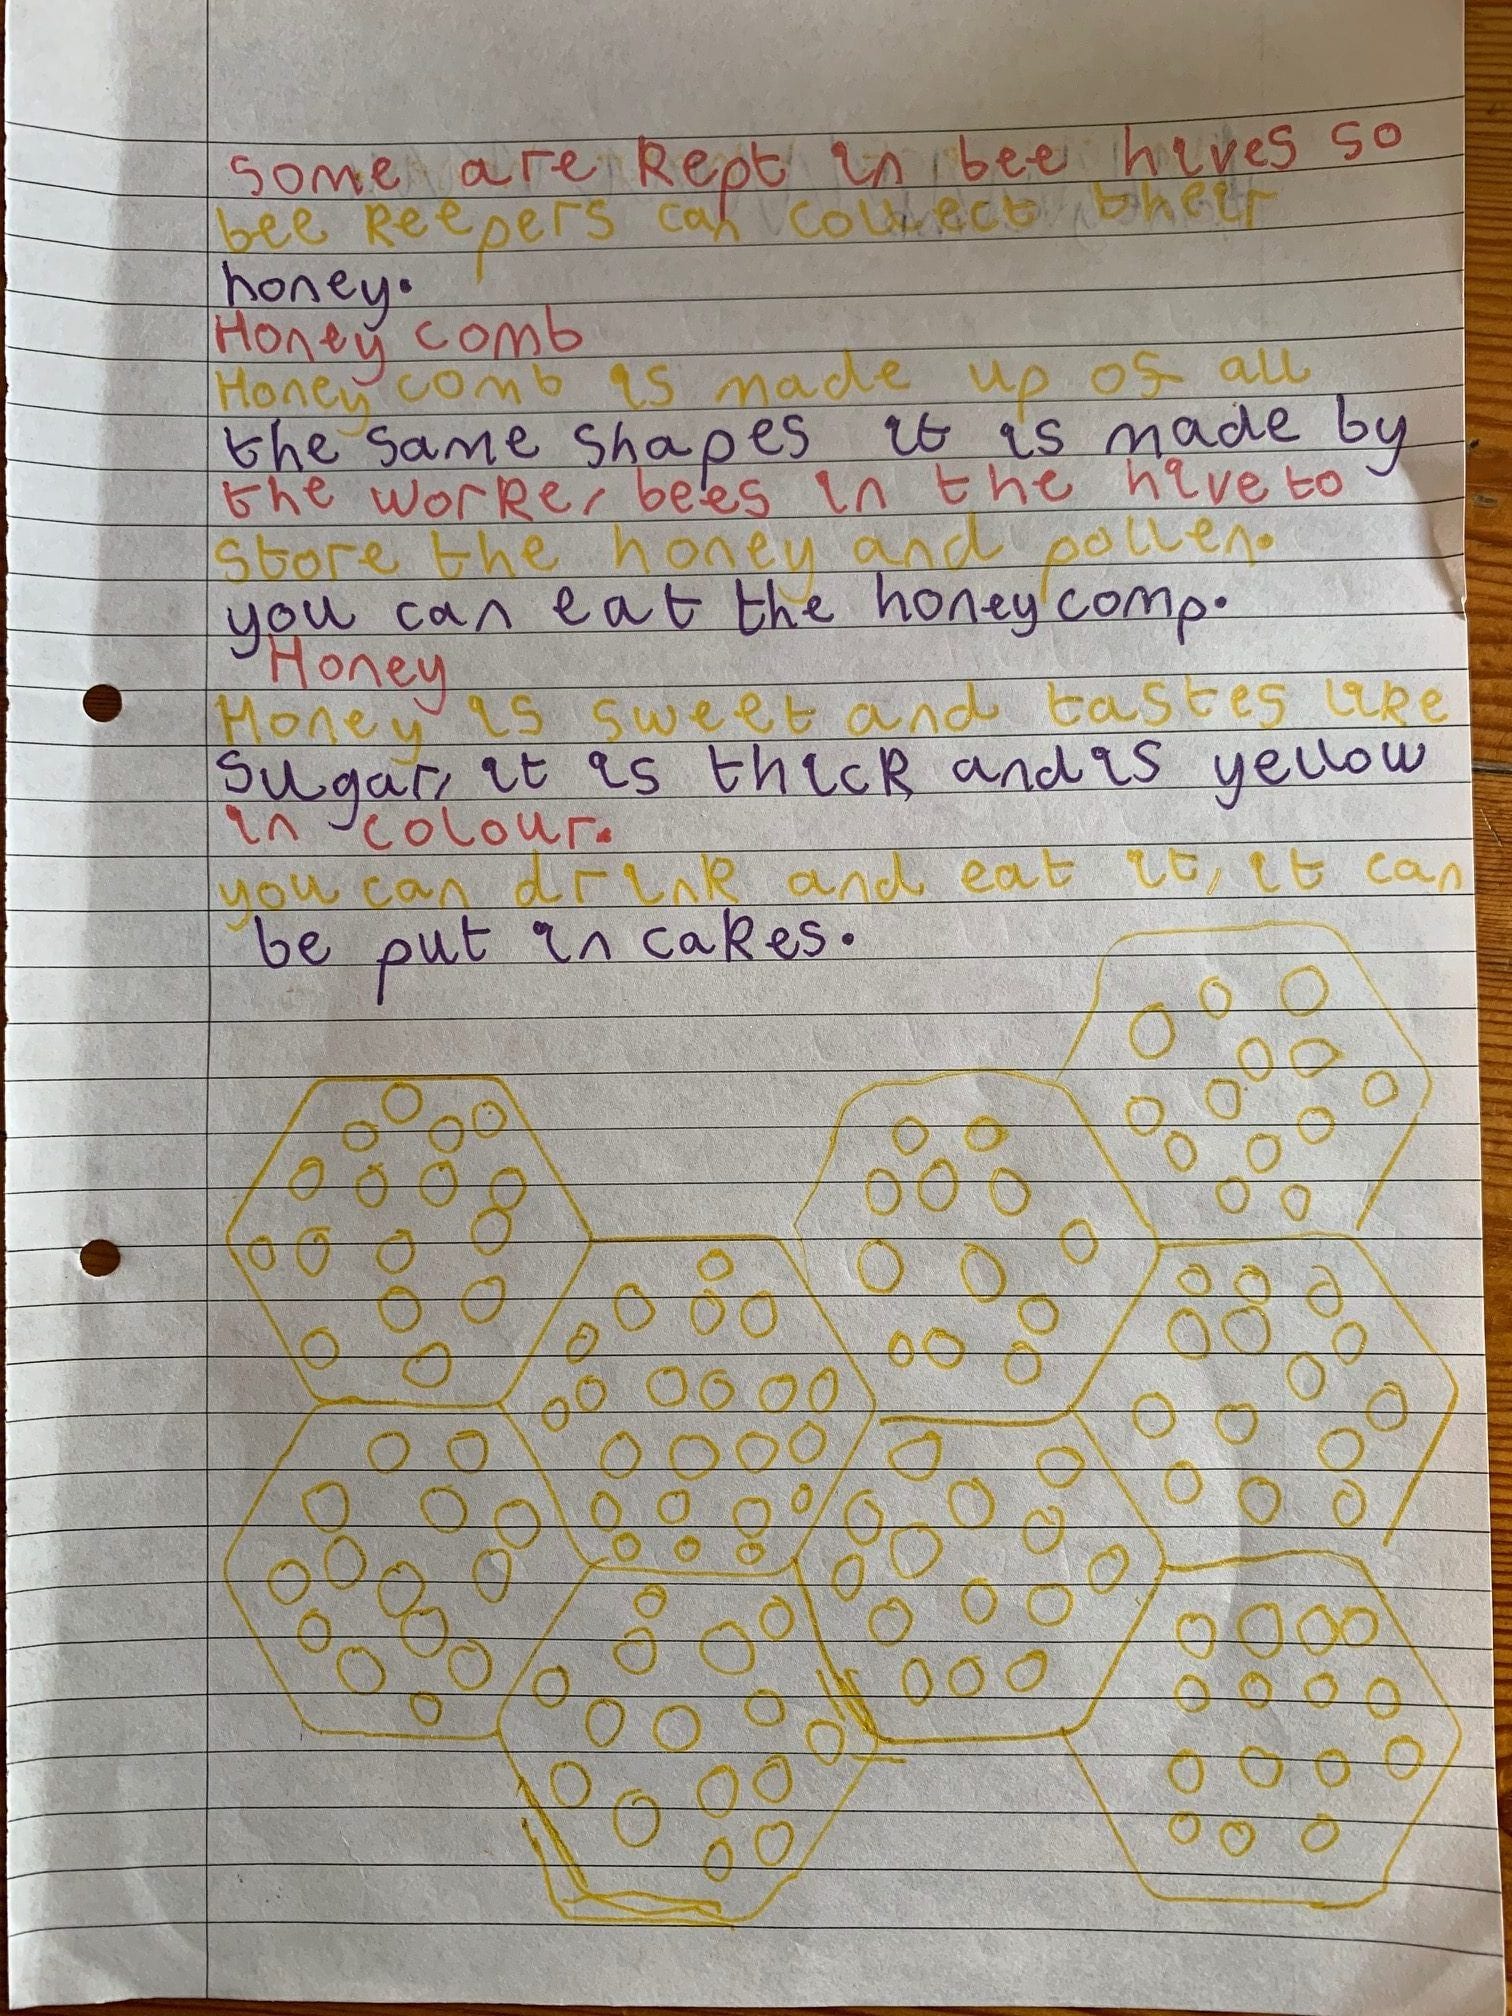 some are kept in bee hives so
bee keepers can collect their
honey.
Honey comb
Honey comb is made up of all
the same shapes it is made by
the worker bees in the hive to
store the honey and pollen.
you can eat the honey comp.
Honey
Honey is sweet and tastes like
sugar, it is thick and is yellow
in colour.
you can drink and eat it, it can
be put in cakes.